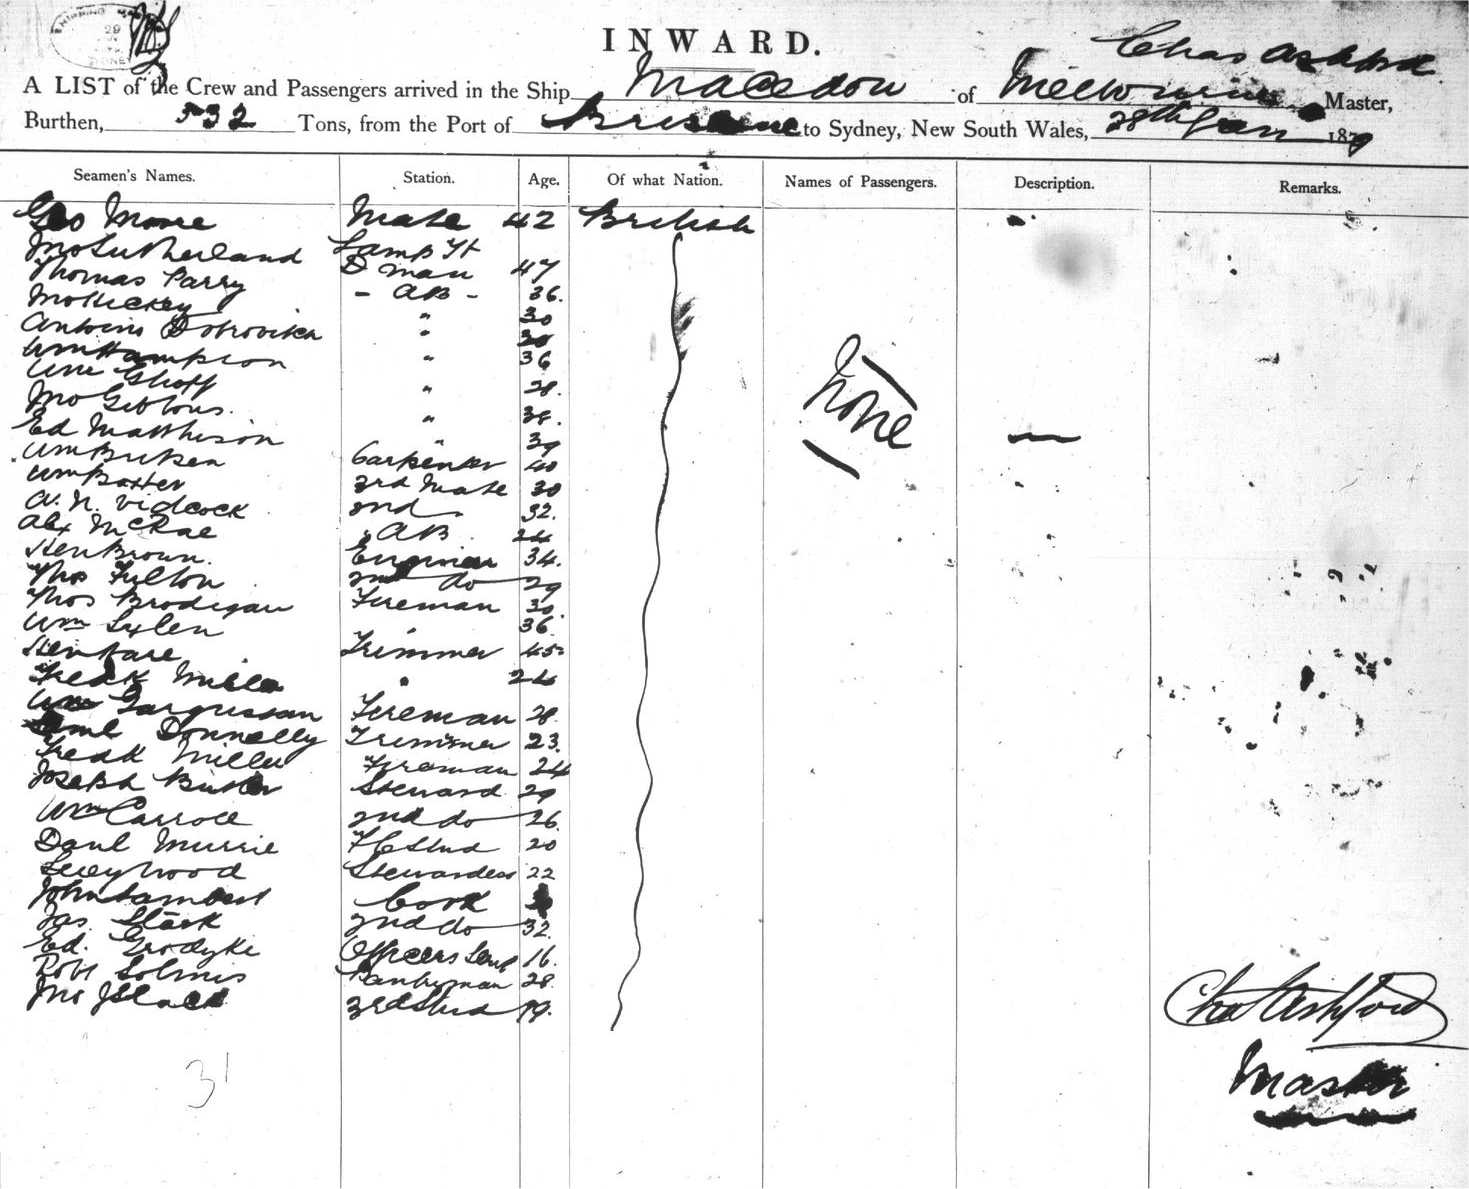 INWARD.
Chas Ashford
A LIST of the Crew and Passengers arrived in the Ship Macedon of Melbourne Master,
Burthen, 532 Tons, from the Port of Brisbane to Sydney, New South Wales, 28th Jan 1879
Seamen's Names. Station. Age. Of what Nation. Names of Passengers. Description. Remarks.
Geo Moore Mate 42 British
Jno Sutherland Lamp Tr
Thomas Parry D man 47
Jno Hickey - AB - 36.
Antonio " 30
Wm Hampson " 30
Wm " 36
Jno Gibbons. " 28.
Ed Matthison " 38.
Wm " 39
Wm Baxter Carpenter 40
A. N. Vidcock 3rd Mate 30
Alex McRae 2nd 32.
Hen Brown. AB 24
Thos Fulton Engineer 34.
Thos Brodigan 2nd do 29
Wm Fireman 30.
Hen Hare 36
Fredk Miller Trimmer 45
Wm Fargusson " 24
Saml Donnelly Fireman 28
Fredk Miller Trimmer 23.
Joseph Butler Fireman 24
Wm Carroll Steward 29
Danl Murrie 2nd do 26.
Lucy Wood F C Stwd 20
John Lambert Stewardess 22
Jas. Stark Cook
Ed. Grodyke 2nd do 32.
Robt Officers Servt 16.
Jno Black Pantryman 28
3rd Stwd 19.
None
—
31
Chas Ashford
Master